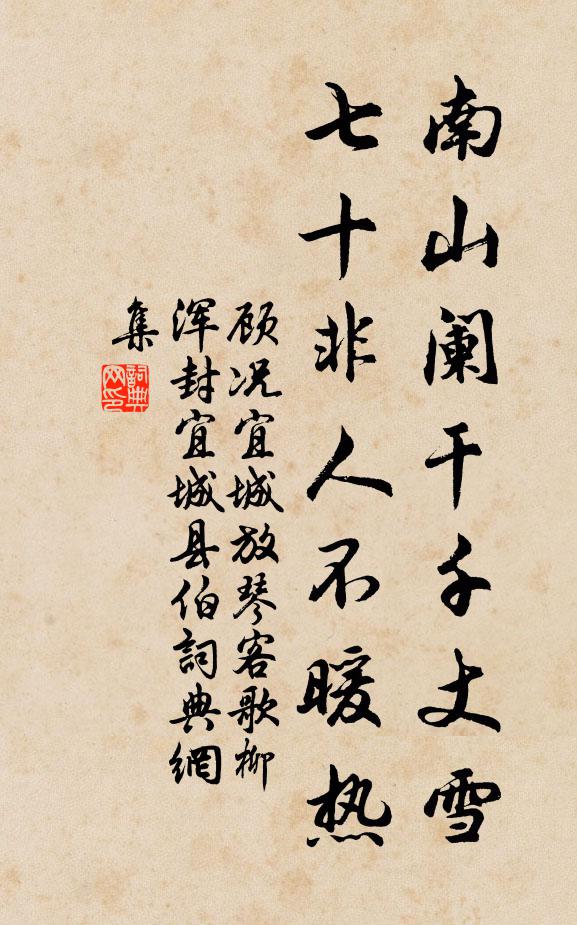 南山阑干千丈雪
七十非人不暖热
顾况宜城放琴客歌柳
浑封宜城县伯詞典網
集
詞典网印